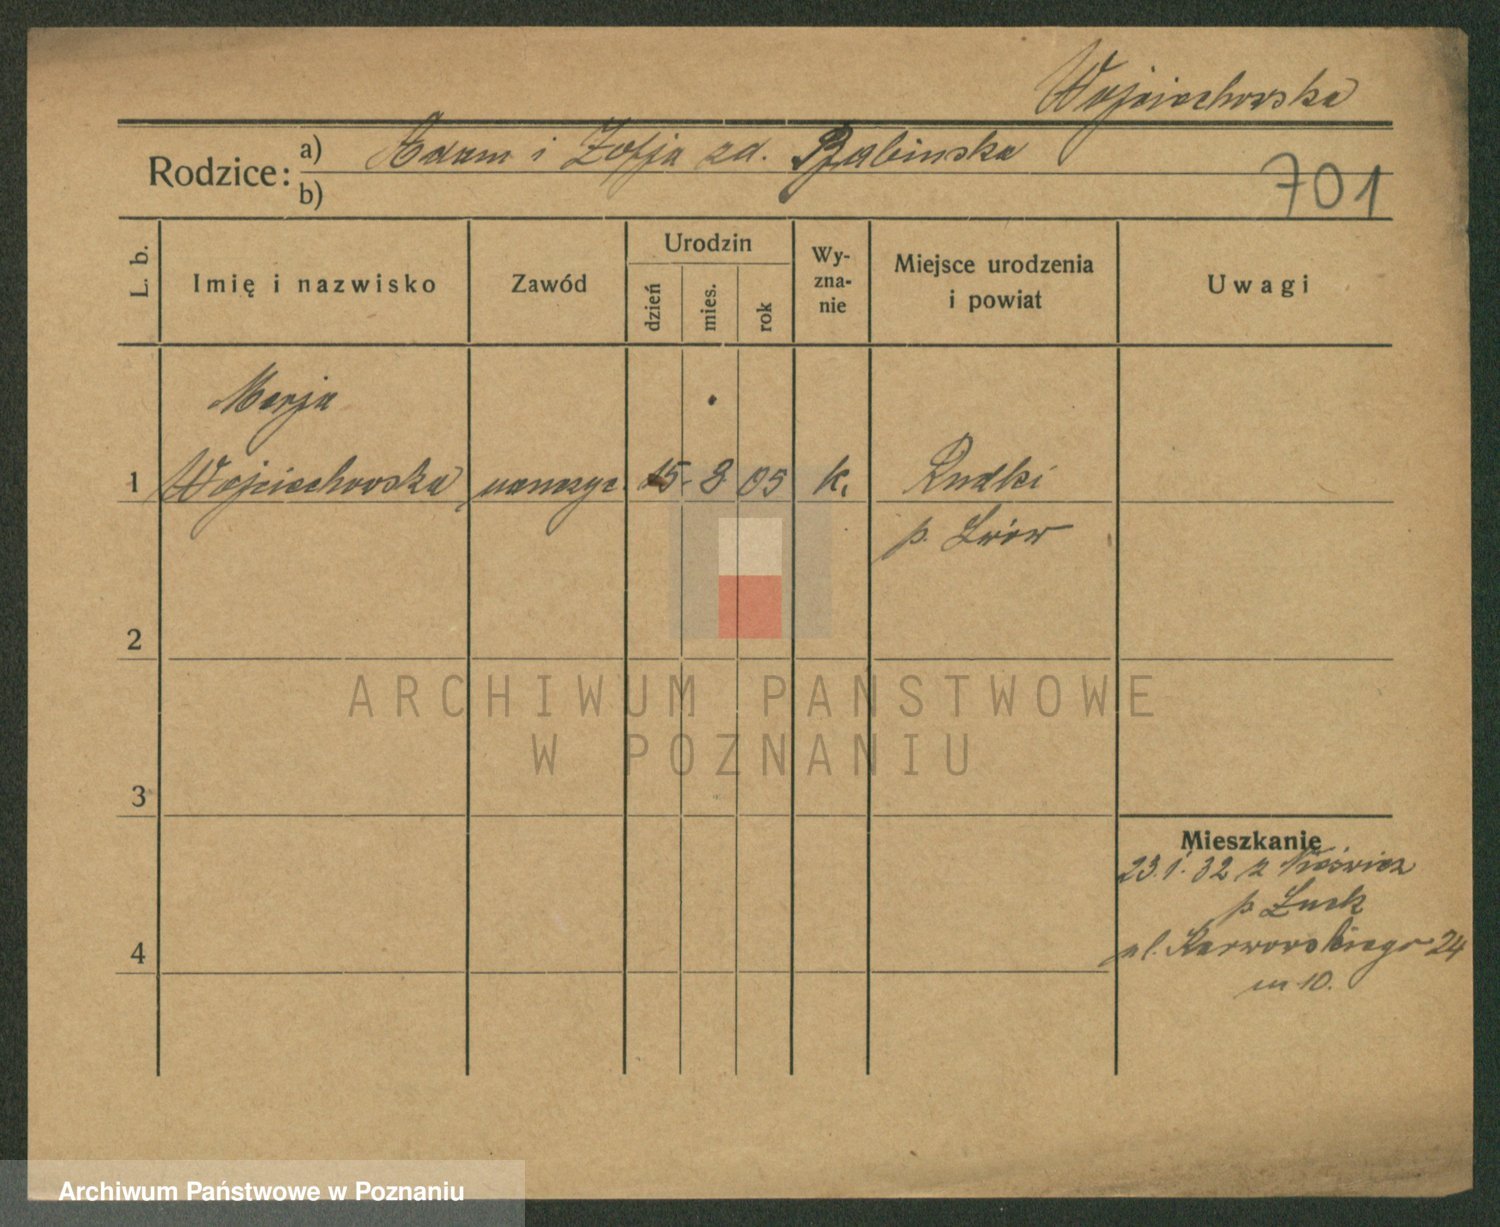 Wojciechowska
Rodzice: a) Adam i Zofja zd. Babinska
b)
701
L. b.
Imię i nazwisko
Zawód
Urodzin
dzień
mies.
rok
Wy-
zna-
nie
Miejsce urodzenia
i powiat
Uwagi
Marja
1 Wojciechowska nauczyc. 15. 8 05 k. Rudki
p. Lwów
2
ARCHIWUM PAŃSTWOWE
W POZNANIU
3
Mieszkanie
23.1.32 z
p Łuck
4
ul. Karwowskiego 24
m 10.
Archiwum Państwowe w Poznaniu